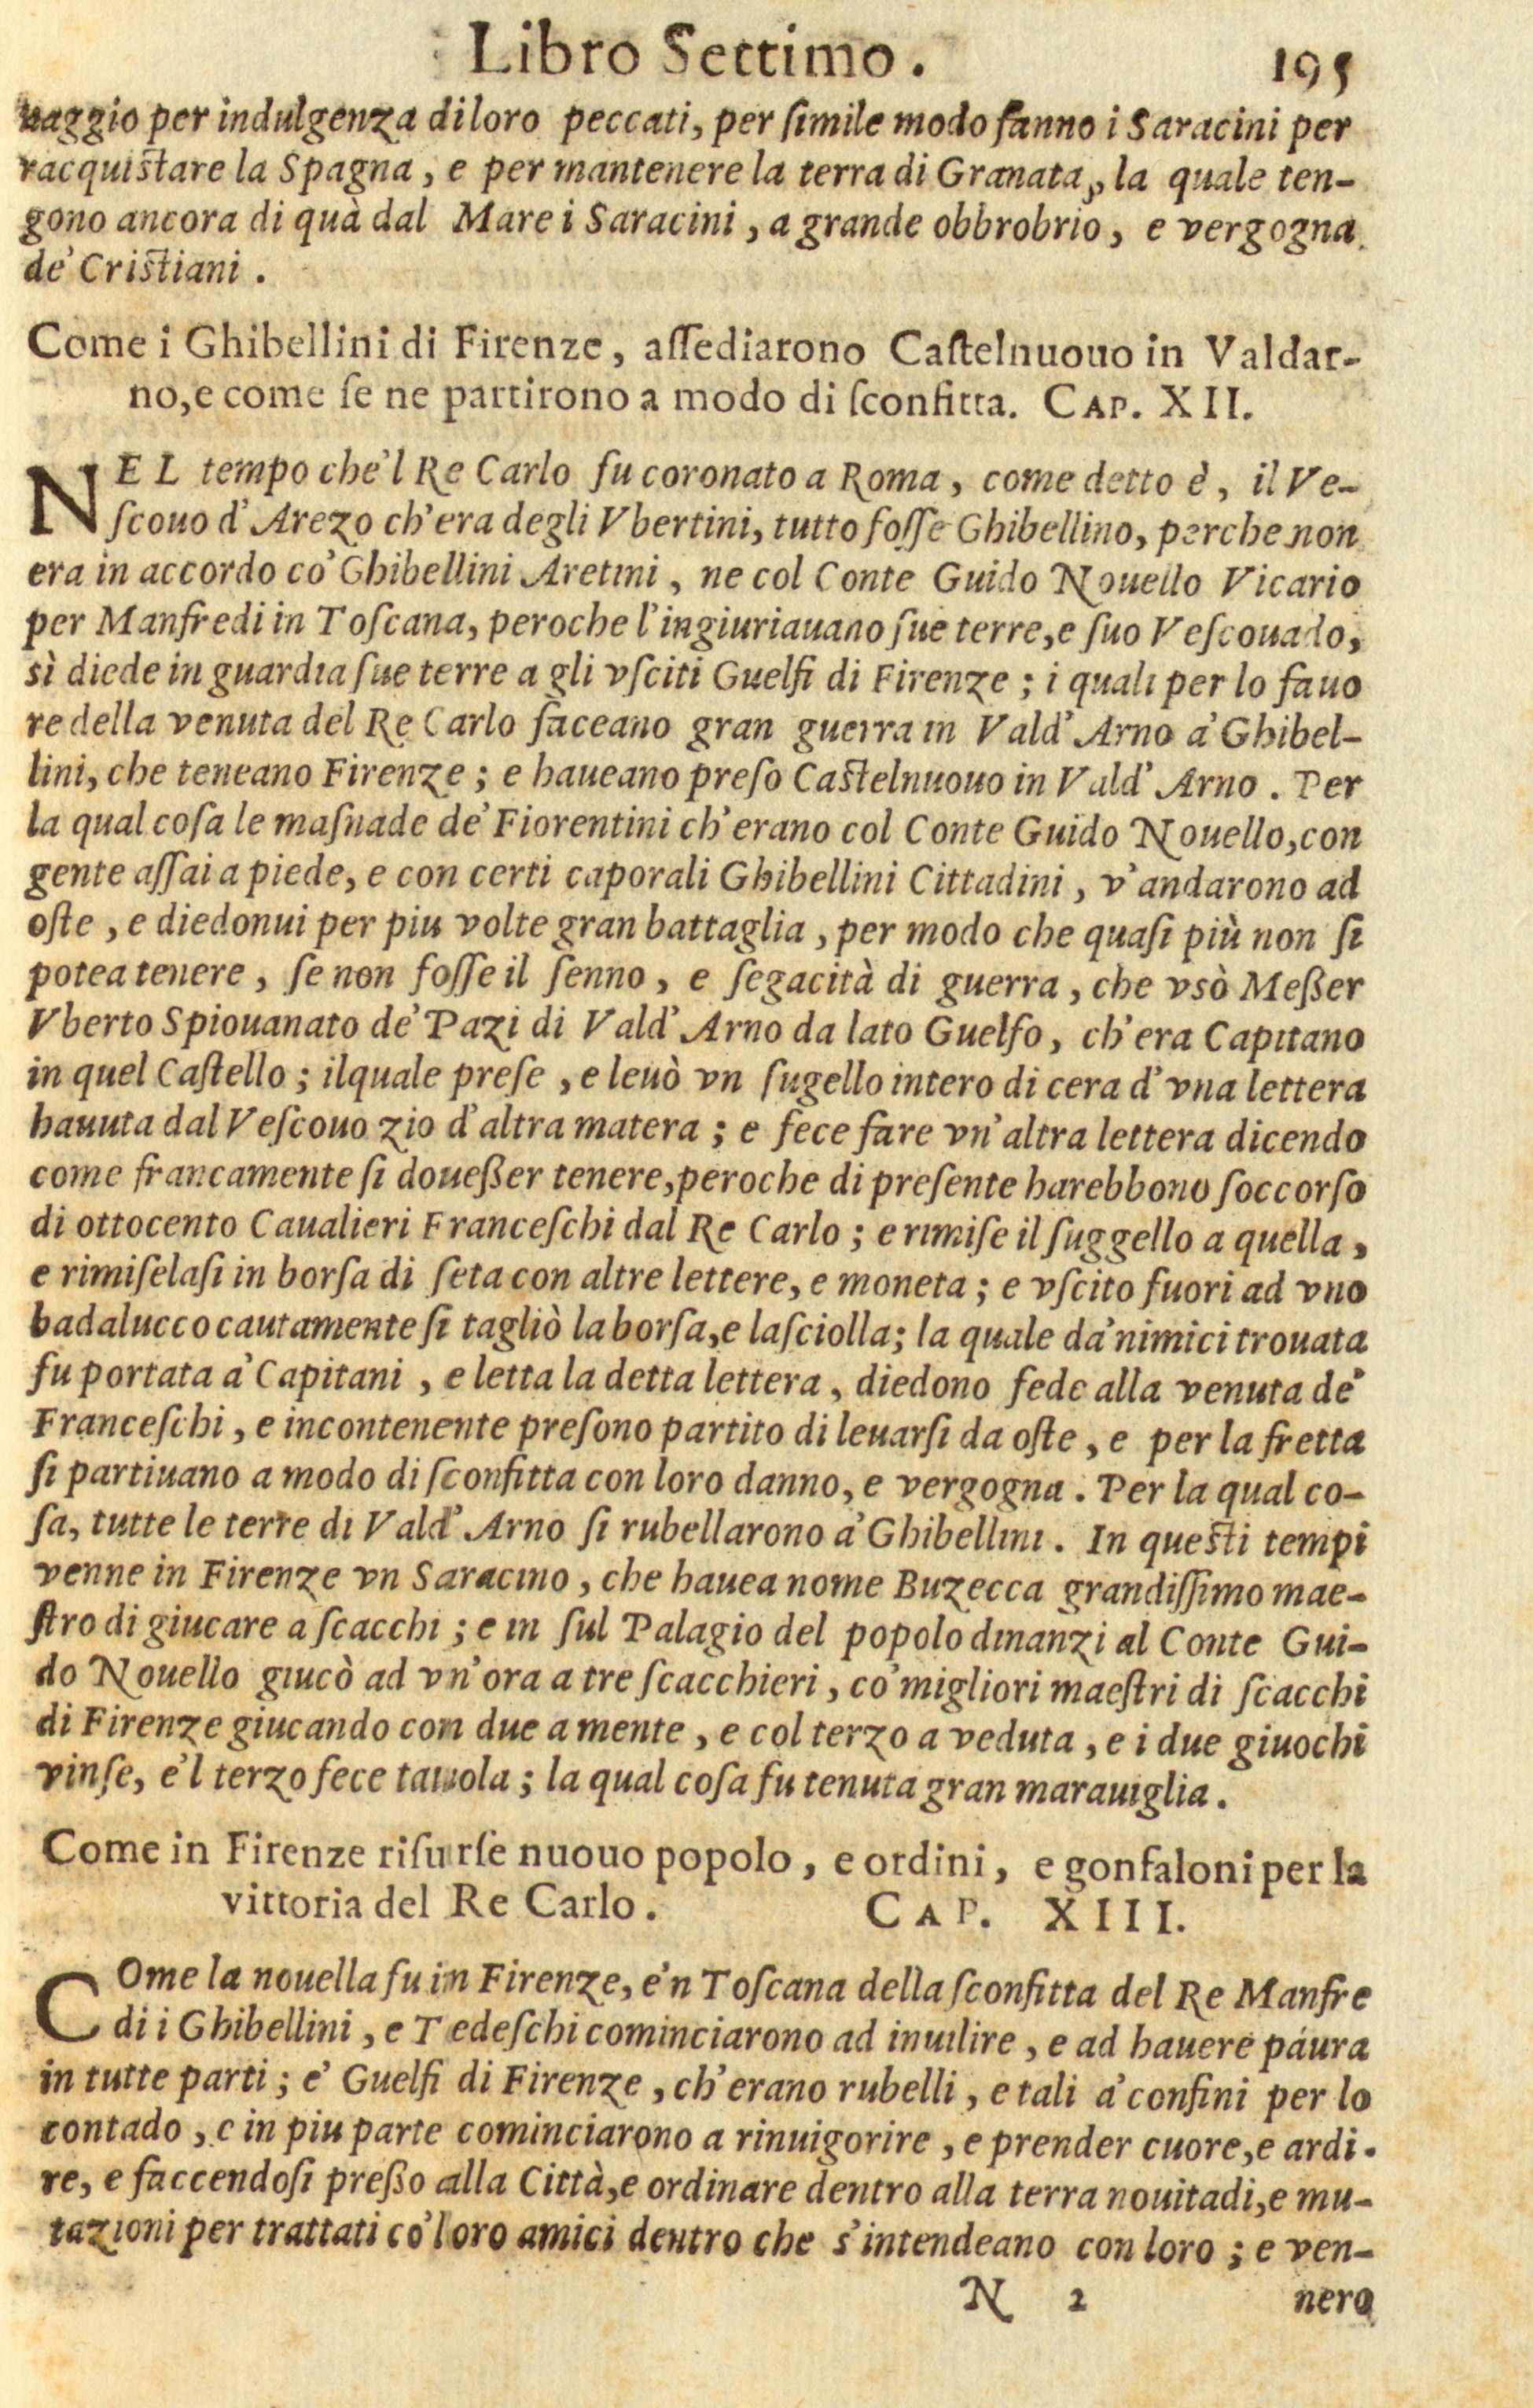 Libro Settimo. 195
uaggio per indulgenza di loro peccati, per ſimile modo fanno i Saracini per
racquiſtare la Spagna, e per mantenere la terra di Granata, la quale ten-
gono ancora di quà dal Mare i Saracini, a grande obbrobrio, e vergogna
de' Criſtiani.
Come i Ghibellini di Firenze, aſſediarono Caſtelnuouo in Valdar-
no, e come ſe ne partirono a modo di ſconfitta. CAP. XII.
NEL tempo che'l Re Carlo fu coronato a Roma, come detto è, il Ve-
ſcouo d'Arezo ch'era degli Vbertini, tutto foſſe Ghibellino, perche non
era in accordo co' Ghibellini Aretini, ne col Conte Guido Nouello Vicario
per Manfredi in Toſcana, peroche l'ingiuriauano ſue terre, e ſuo Veſcouado,
sì diede in guardia ſue terre a gli vſciti Guelfi di Firenze; i quali per lo fauo
re della venuta del Re Carlo faceano gran guerra in Vald'Arno a' Ghibel-
lini, che teneano Firenze; e haueano preſo Caſtelnuouo in Vald'Arno. Per
la qual coſa le maſnade de' Fiorentini ch'erano col Conte Guido Nouello, con
gente aſſai a piede, e con certi caporali Ghibellini Cittadini, v'andarono ad
oſte, e diedonui per piu volte gran battaglia, per modo che quaſi più non ſi
potea tenere, ſe non foſſe il ſenno, e ſegacità di guerra, che vsò Meßer
Vberto Spiouanato de' Pazi di Vald'Arno da lato Guelfo, ch'era Capitano
in quel Caſtello; ilquale preſe, e leuò vn ſugello intero di cera d'vna lettera
hauuta dal Veſcouo zio d'altra matera; e fece fare vn'altra lettera dicendo
come francamente ſi doueßer tenere, peroche di preſente harebbono ſoccorſo
di ottocento Caualieri Franceſchi dal Re Carlo; e rimiſe il ſuggello a quella,
e rimiſelaſi in borſa di ſeta con altre lettere, e moneta; e vſcito fuori ad vno
badalucco cautamente ſi tagliò la borſa, e laſciolla; la quale da' nimici trouata
fu portata a' Capitani, e letta la detta lettera, diedono fede alla venuta de'
Franceſchi, e incontenente preſono partito di leuarſi da oſte, e per la fretta
ſi partiuano a modo di ſconfitta con loro danno, e vergogna. Per la qual co-
ſa, tutte le terre di Vald'Arno ſi rubellarono a' Ghibellini. In queſti tempi
venne in Firenze vn Saracino, che hauea nome Buzecca grandiſſimo mae-
ſtro di giucare a ſcacchi; e in ſul Palagio del popolo dinanzi al Conte Gui-
do Nouello giucò ad vn'ora a tre ſcacchieri, co' migliori maeſtri di ſcacchi
di Firenze giucando con due a mente, e col terzo a veduta, e i due giuochi
vinſe, e'l terzo fece tauola; la qual coſa fu tenuta gran marauiglia.
Come in Firenze riſurſe nuouo popolo, e ordini, e gonfaloni per la
vittoria del Re Carlo. CAP. XIII.
COme la nouella fu in Firenze, e'n Toſcana della ſconfitta del Re Manfre
di i Ghibellini, e Tedeſchi cominciarono ad inuilire, e ad hauere páura
in tutte parti; e' Guelfi di Firenze, ch'erano rubelli, e tali a' confini per lo
contado, e in piu parte cominciarono a rinuigorire, e prender cuore, e ardi-
re, e faccendoſi preßo alla Città, e ordinare dentro alla terra nouitadi, e mu-
tazioni per trattati co' loro amici dentro che s'intendeano con loro; e ven-
N 2 nero